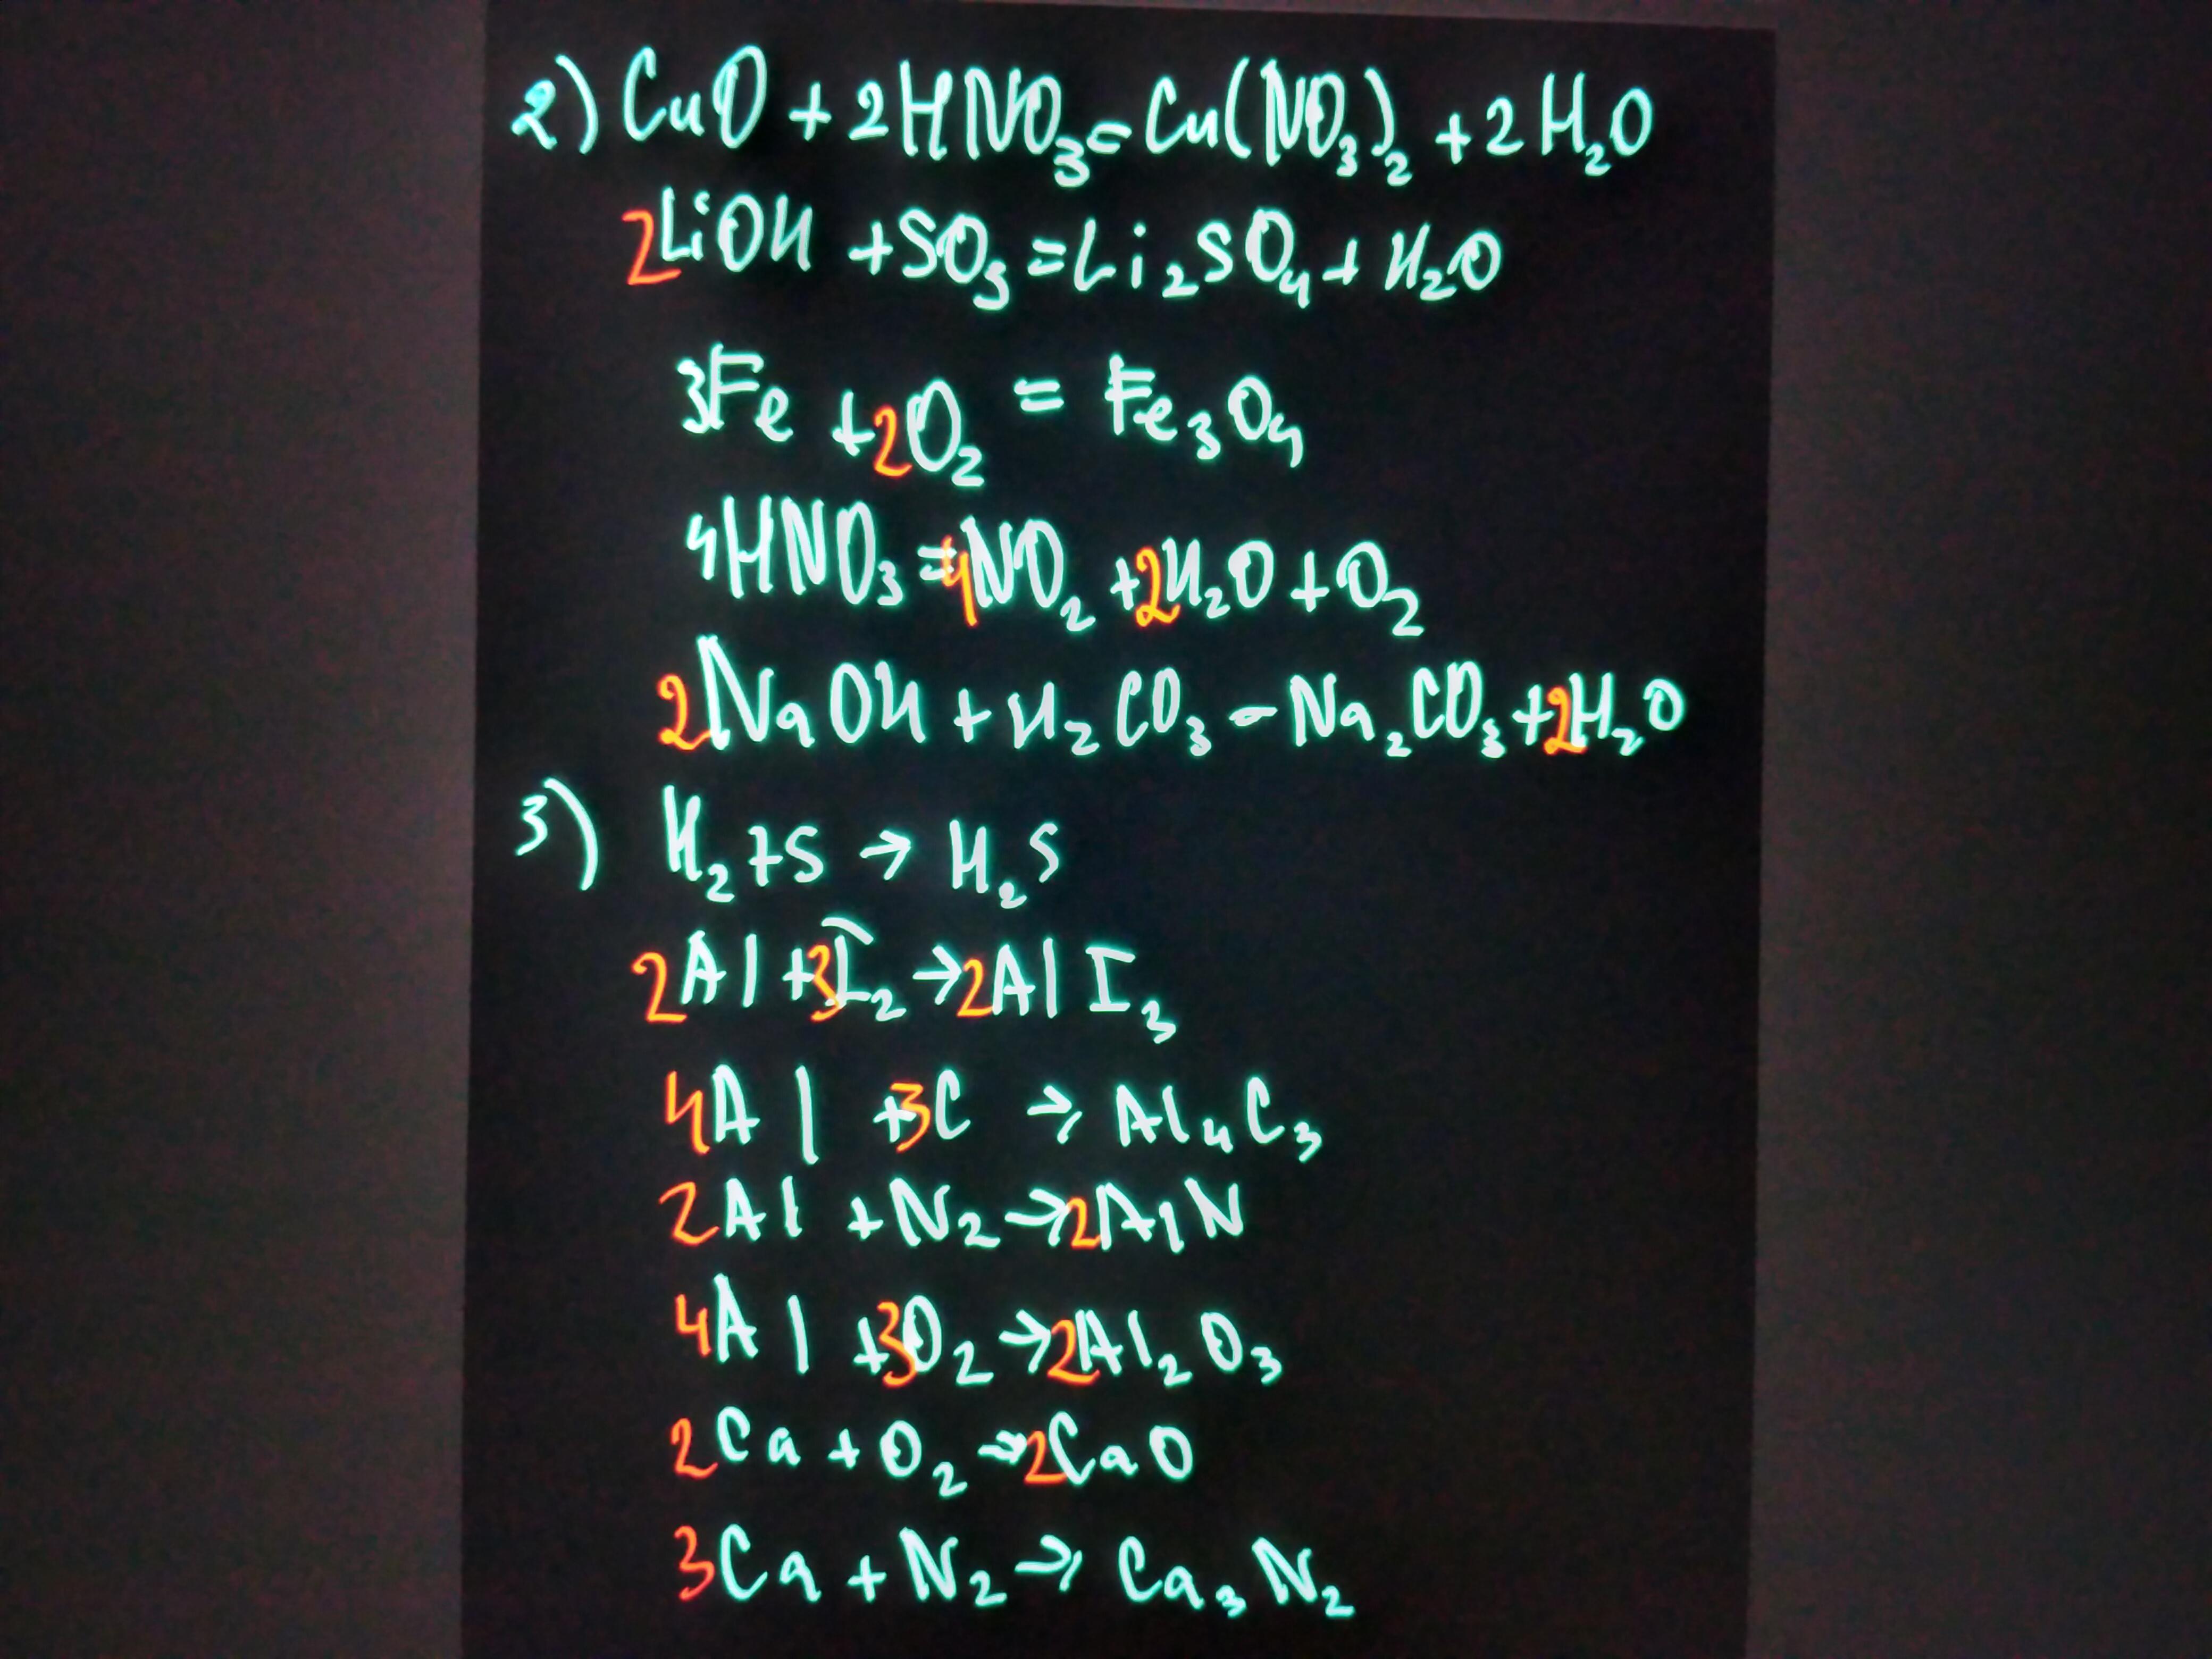 2) CuO + 2HNO₃ = Cu(NO₃)₂ + 2H₂O
2LiOH + SO₃ = Li₂SO₄ + H₂O
3Fe + 2O₂ = Fe₃O₄
4HNO₃ = 4NO₂ + 2H₂O + O₂
2NaOH + H₂CO₃ - Na₂CO₃ + 2H₂O
3) H₂ + S → H₂S
2Al + 3I₂ → 2AlI₃
4Al + 3C → Al₄C₃
2Al + N₂ → 2AlN
4Al + 3O₂ → 2Al₂O₃
2Ca + O₂ → 2CaO
3Ca + N₂ → Ca₃N₂